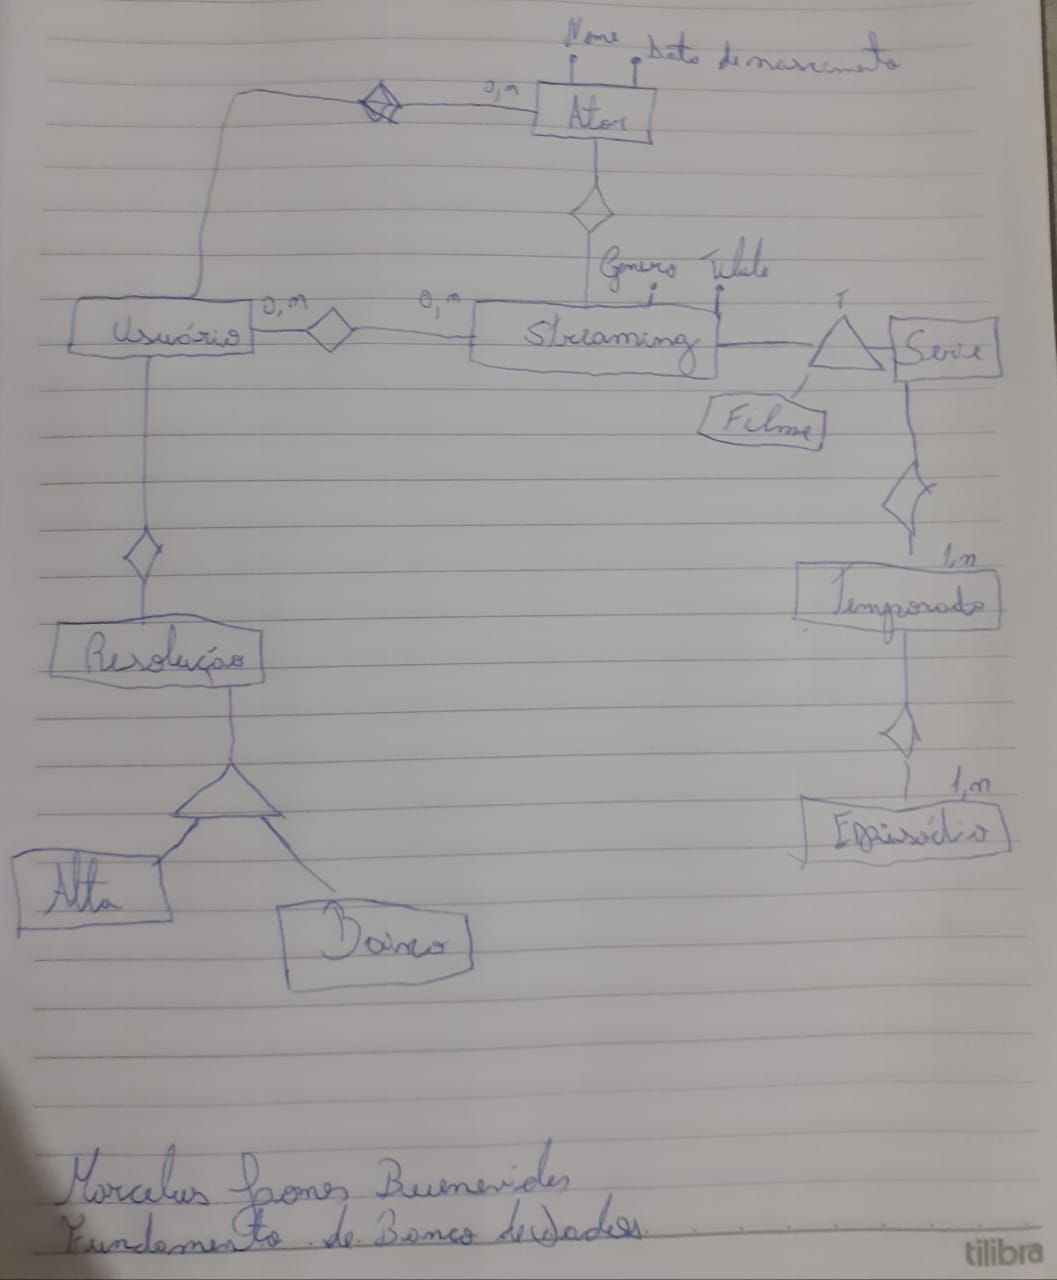 Nome Data de nascimento
0,n
Ator
Genero Titulo
0,n
0,n
T
Usuário
Streaming
Serie
Filme
1,n
Temporada
Resolução
1,n
Episódio
Alta
Baixa
Marcelus Gomes Buenevides
Fundamento de Banco de Dados.
tilibra